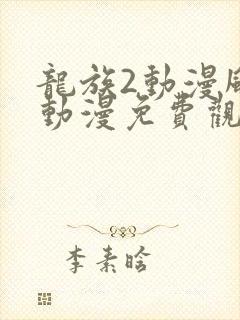 龍族2動漫風
動漫免費觀
李素晗